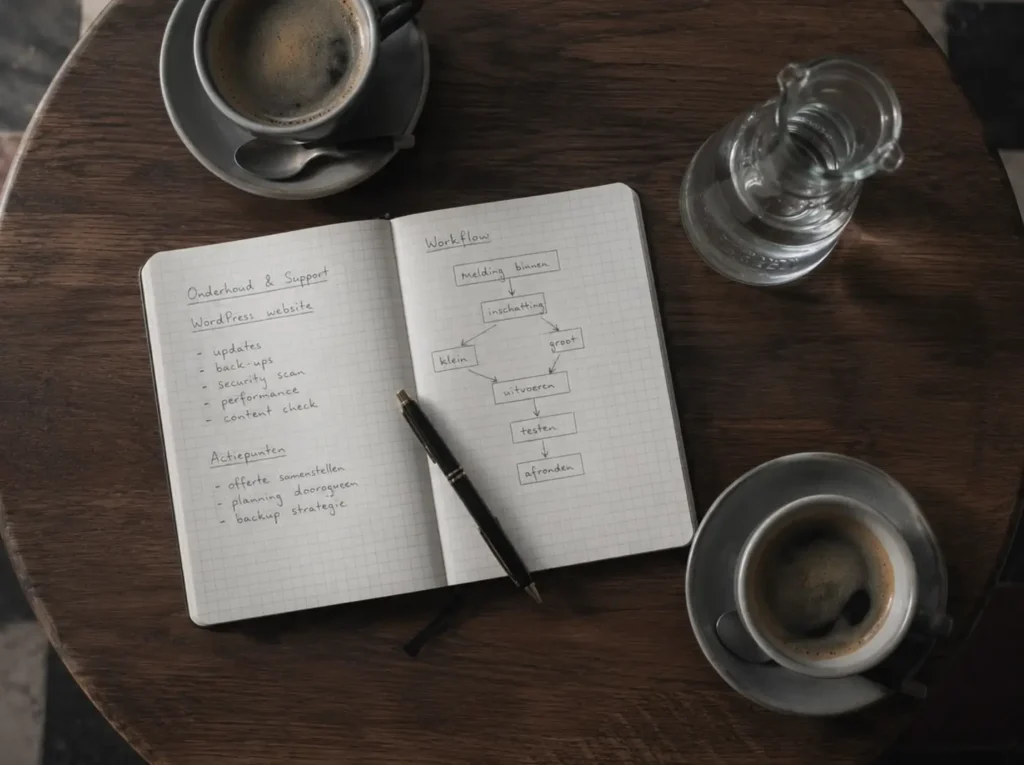 Onderhoud & Support
WordPress website
- updates
- back-ups
- security scan
- performance
- content check
Actiepunten
- offerte samenstellen
- planning doorogueen
- backup strategie
Workflow
Melding binnen
inschatting
klein
groot
uitvoeren
testen
afronden